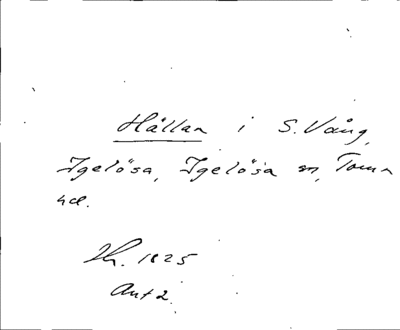 Hållan i S. Vång,
Igelösa, Igelösa sn, Torna
hd.
1825
Ant 2.